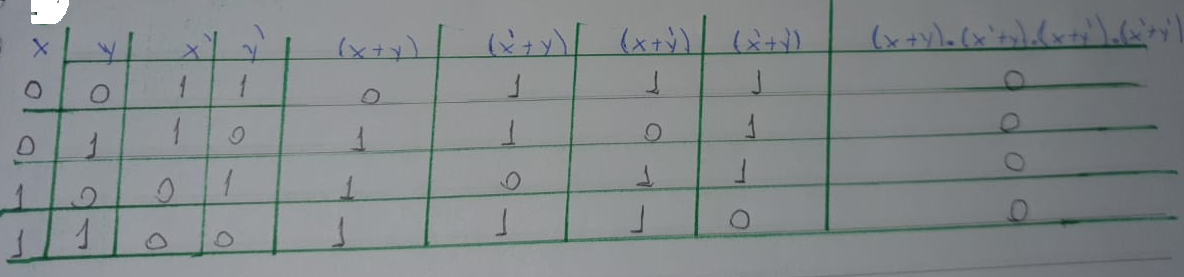 x y x' y' (x+y) (x'+y) (x+y') (x'+y') (x+y).(x'+y).(x+y').(x'+y')
0 0 1 1 0 1 1 1 0
0 1 1 0 1 1 0 1 0
1 0 0 1 1 0 1 1 0
1 1 0 0 1 1 1 0 0